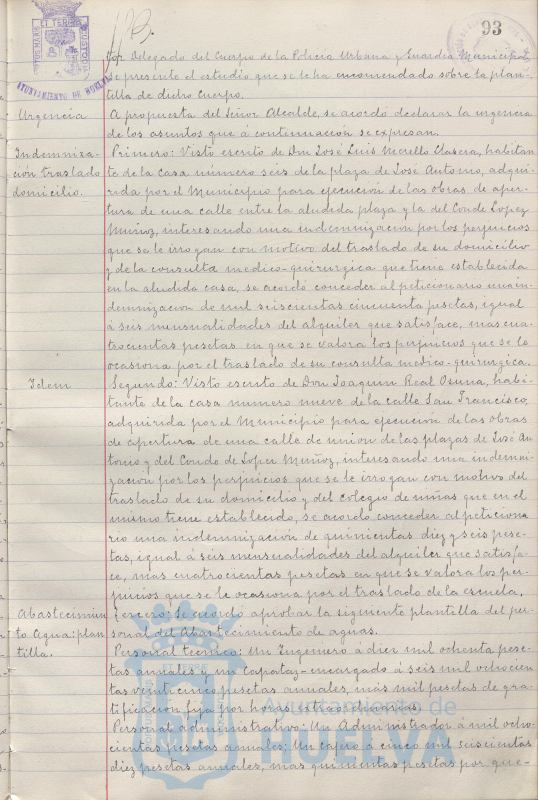 93
tor Delegado del Cuerpo de la Policía Urbana y Guardia Municipal,
se presente el estudio que se le ha encomendado sobre la plan-
tilla de dicho Cuerpo.
Urgencia A propuesta del Señor Alcalde, se acordó declarar la urgencia
de los asuntos que á continuación se expresan.
Indemniza- Primero: Visto escrito de Don José Luis Morello Clasera, habitan
ción traslado te de la casa número seis de la plaza de José Antonio, adqui-
domicilio. rida por el Municipio para ejecución de las obras de aper-
tura de una calle entre la aludida plaza y la del Conde Lopez
Muñoz, interesando una indemnización por los perjuicios
que se le irrogan con motivo del traslado de su domicilio
y de la consulta medico-quirurgica que tiene establecida
en la aludida casa, se acordó conceder al peticionario una in-
demnizacion de mil seiscientas cincuenta pesetas, igual
á seis mensualidades del alquiler que satisface, mas cua-
trocientas pesetas en que se valora los perjuicios que se le
ocasiona por el traslado de su consulta medico-quirurgica.
Idem Segundo: Visto escrito de Don Joaquin Real Osuna, habi-
tante de la casa numero nueve de la calle San Francisco,
adquirida por el Municipio para ejecución de las obras
de apertura de una calle de union de las plazas de José An
tonio y del Conde de Lopez Muñoz, interesando una indemni-
zacion por los perjuicios que se le irrogan con motivo del
traslado de su domicilio y del colegio de niñas que en el
mismo tiene establecido, se acordó conceder al peticiona
rio una indemnizacion de quinientas diez y seis pese-
tas, igual á seis mensualidades del alquiler que satisfa-
ce, mas cuatrocientas pesetas en que se valora los per-
juicios que se le ocasiona por el traslado de la escuela.
Abastecimien Tercero: Se acordó aprobar la siguiente plantilla del per-
to Agua: plan sonal del Abastecimiento de aguas.
tilla. Personal tecnico: Un Ingeniero á diez mil ochenta pese-
tas anuales y un Capataz-encargado á seis mil ochocien
tas veinticinco pesetas anuales, más mil pesetas de gra-
tificación fija por horas extraordinarias.
Personal administrativo: Un Administrador á mil ocho-
cientas pesetas anuales: Un cajero a cinco mil seiscientas
diez pesetas anuales, mas quinientas pesetas por que-
AYUNTAMIENTO DE HUELVA
Ayuntamiento de
HUELVA